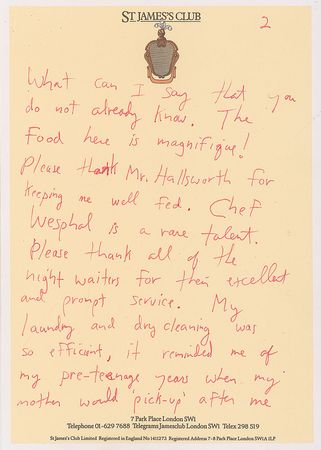 ST JAMES'S CLUB
2
What can I say that you
do not already know. The
food here is magnifique!
Please thank Mr. Hallsworth for
keeping me well fed. Chef
Wesphal is a rare talent.
Please thank all of the
night waiters for their excellent
and prompt service. My
laundry and dry cleaning was
so efficient, it reminded me of
my pre-teenage years when my
mother would pick-up after me
7 Park Place London SW1
Telephone 01-629 7688 Telegrams Jamesclub London SW1 Telex 298 519
St James's Club Limited Registered in England No 1411273 Registered Address 7-8 Park Place London SW1A 1LP